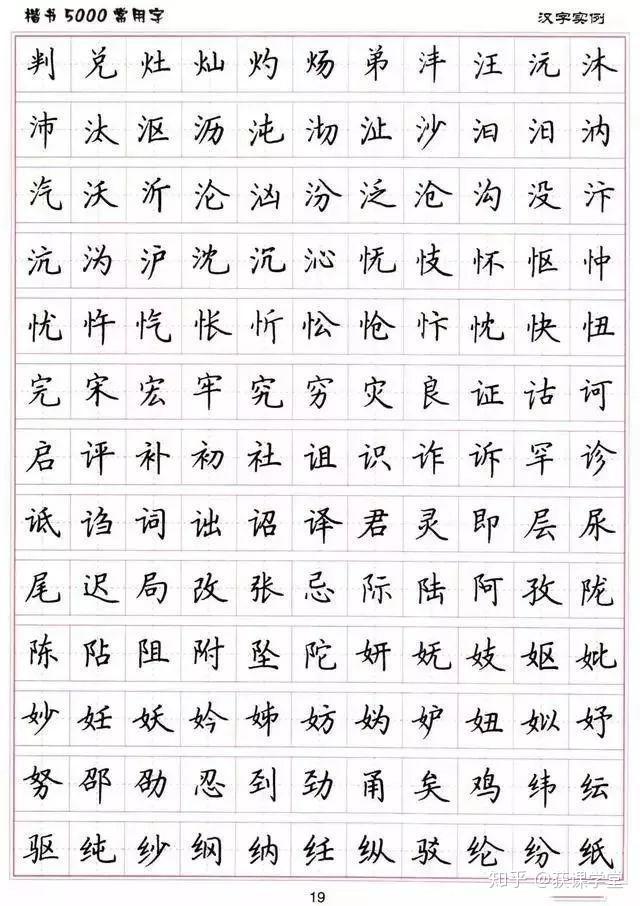 楷书5000常用字 汉字实例
判兑灶灿灼炀弟沣汪沅沐
沛汰沤沥沌沏沚沙汩汨汭
汽沃沂沦汹汾泛沧沟没汴
沆沩沪沈沉沁怃忮怀怄忡
忧忤忾怅忻忪怆忭忱快忸
完宋宏牢究穷灾良证诂诃
启评补初社诅识诈诉罕诊
诋诌词诎诏译君灵即层尿
尾迟局改张忌际陆阿孜陇
陈阽阻附坠陀妍妩妓妪妣
妙妊妖妗姊妨妫妒妞姒妤
努邵劭忍到劲甬矣鸡纬纭
驱纯纱纲纳纴纵驳纶纷纸
19
知乎 @获课学堂